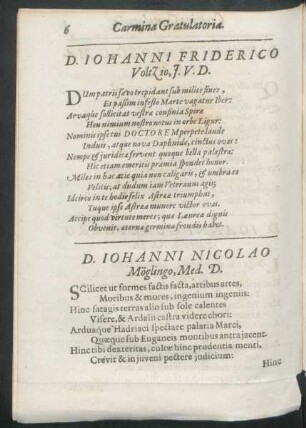 6 Carmina Gratulatoria.
D. IOHANNI FRIDERICO
Voltzio, J. V. D.
DUm patrii sævo trepidant sub milite fines,
Et passim infesto Marte vagatur Iber:
Arvaque sollicitat vestræ confinia Spiræ
Heu nimium nostro notus in orbe Ligur:
Nominis ipse tui DOCTOREM perpete laude
Induis, atque nova Daphnide, cinctus ovas:
Nempe & juridicæ fervent quoque bella palæstræ:
Hic etiam emeritis præmia spondet honor.
Miles in hac acie quia non caligatis, & umbra es
Velitis, at dudum jam Veteranus agis;
Idcirco in te hodie felix Astræa triumphat,
Tuque ipse Astreæ munere victor ovas.
Accipe quod virtute meres; quæ Laurea dignis
Obvenit, æternæ germina frondis habet.
D. IOHANNI NICOLAO
Möglingo, Med. D.
SCilicet ut formes factis facta, artibus artes,
Moribus & mores, ingenium ingeniis:
Hinc satagis terras alio sub sole calentes
Visere, & Ardalii castra videre chori:
Arduaque Hadriaci spectare palatia Marci,
Quæque sub Euganeis montibus antra jacent.
Hinc tibi dexteritas, cultæ hinc prudentia menti,
Crevit & in juveni pectere judicium:
Hinc